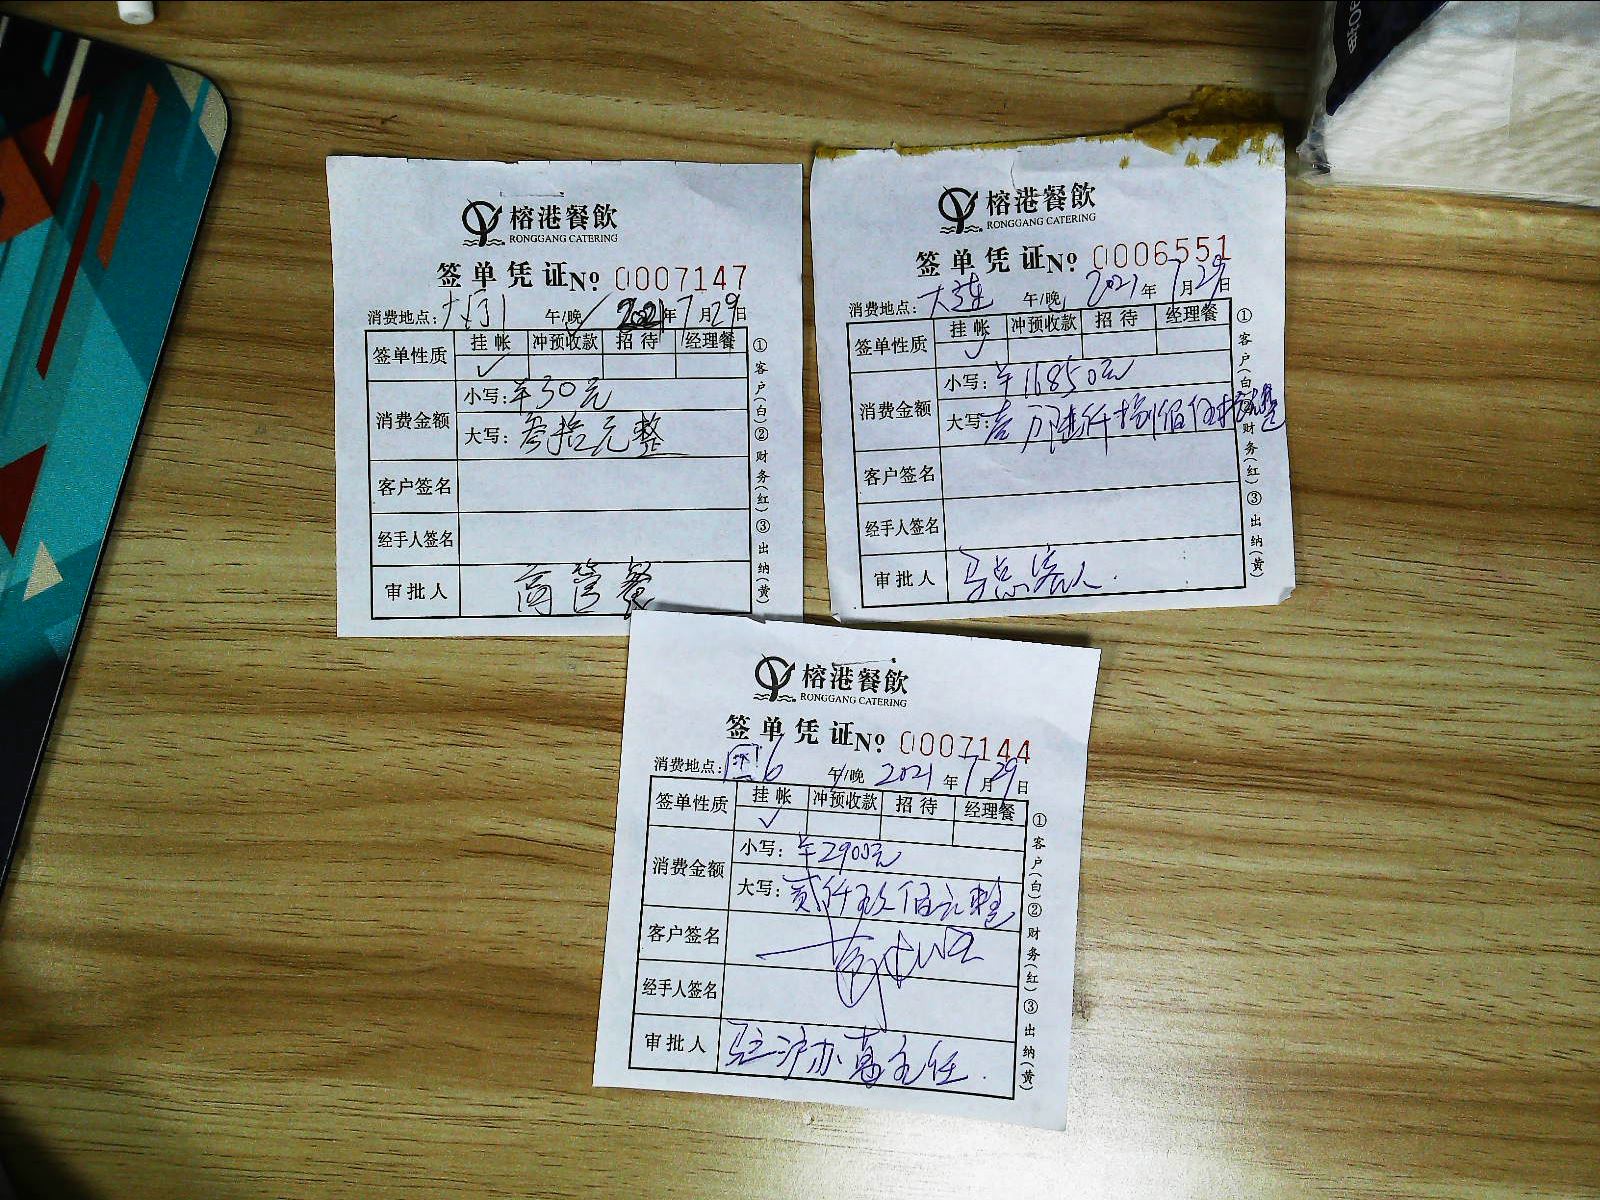 榕港餐飲
RONGGANG CATERING
签单凭证 No 0007147
消费地点: 午/晚 2021年7月29日
签单性质 挂帐 冲预收款 招待 经理餐
✓
消费金额 小写: ¥30元
大写: 叁拾元整
客户签名
经手人签名
审批人 商管餐
①客户(白)②财务(红)③出纳(黄)
榕港餐飲
RONGGANG CATERING
签单凭证 No 0006551
消费地点: 大连 午/晚 2021年7月29日
签单性质 挂帐 冲预收款 招待 经理餐
✓
消费金额 小写: ¥16850元
大写: 壹万陆仟捌佰伍拾元整
客户签名
经手人签名
审批人 马总客人.
①客户(白)②财务(红)③出纳(黄)
榕港餐飲
RONGGANG CATERING
签单凭证 No 0007144
消费地点: 午/晚 2021年7月29日
签单性质 挂帐 冲预收款 招待 经理餐
✓
消费金额 小写: ¥2900元
大写: 贰仟玖佰元整
客户签名
经手人签名
审批人 驻沪办葛主任.
①客户(白)②财务(红)③出纳(黄)